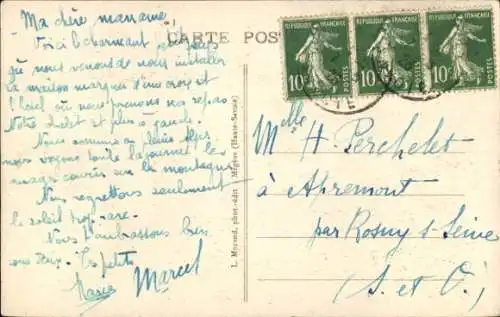 Ma chère marraine
CARTE POS
Voici le charmant petit pays
où nous venons de nous installer
la maison marquée d'une croix et
l'hôtel où nous prenons nos repas
Notre chalet est plus à gauche.
Nous sommes en pleins
nous voyons toute la journée les
nuages courir sur la montagne
Nous regrettons seulement
le soleil trop rare.
Nous t'embrassons bien
tous deux. Tes petits
Marcel
L. Morand, phot.-édit. - Megève (Haute-Savoie)
REPUBLIQUE FRANÇAISE
10c
POSTES
REPUBLIQUE FRANÇAISE
10c
POSTES
REPUBLIQUE FRANÇAISE
10c
POSTES
Melle H. Perchelet
à Apremont
par Rosny s/ Seine
(S. et O.)